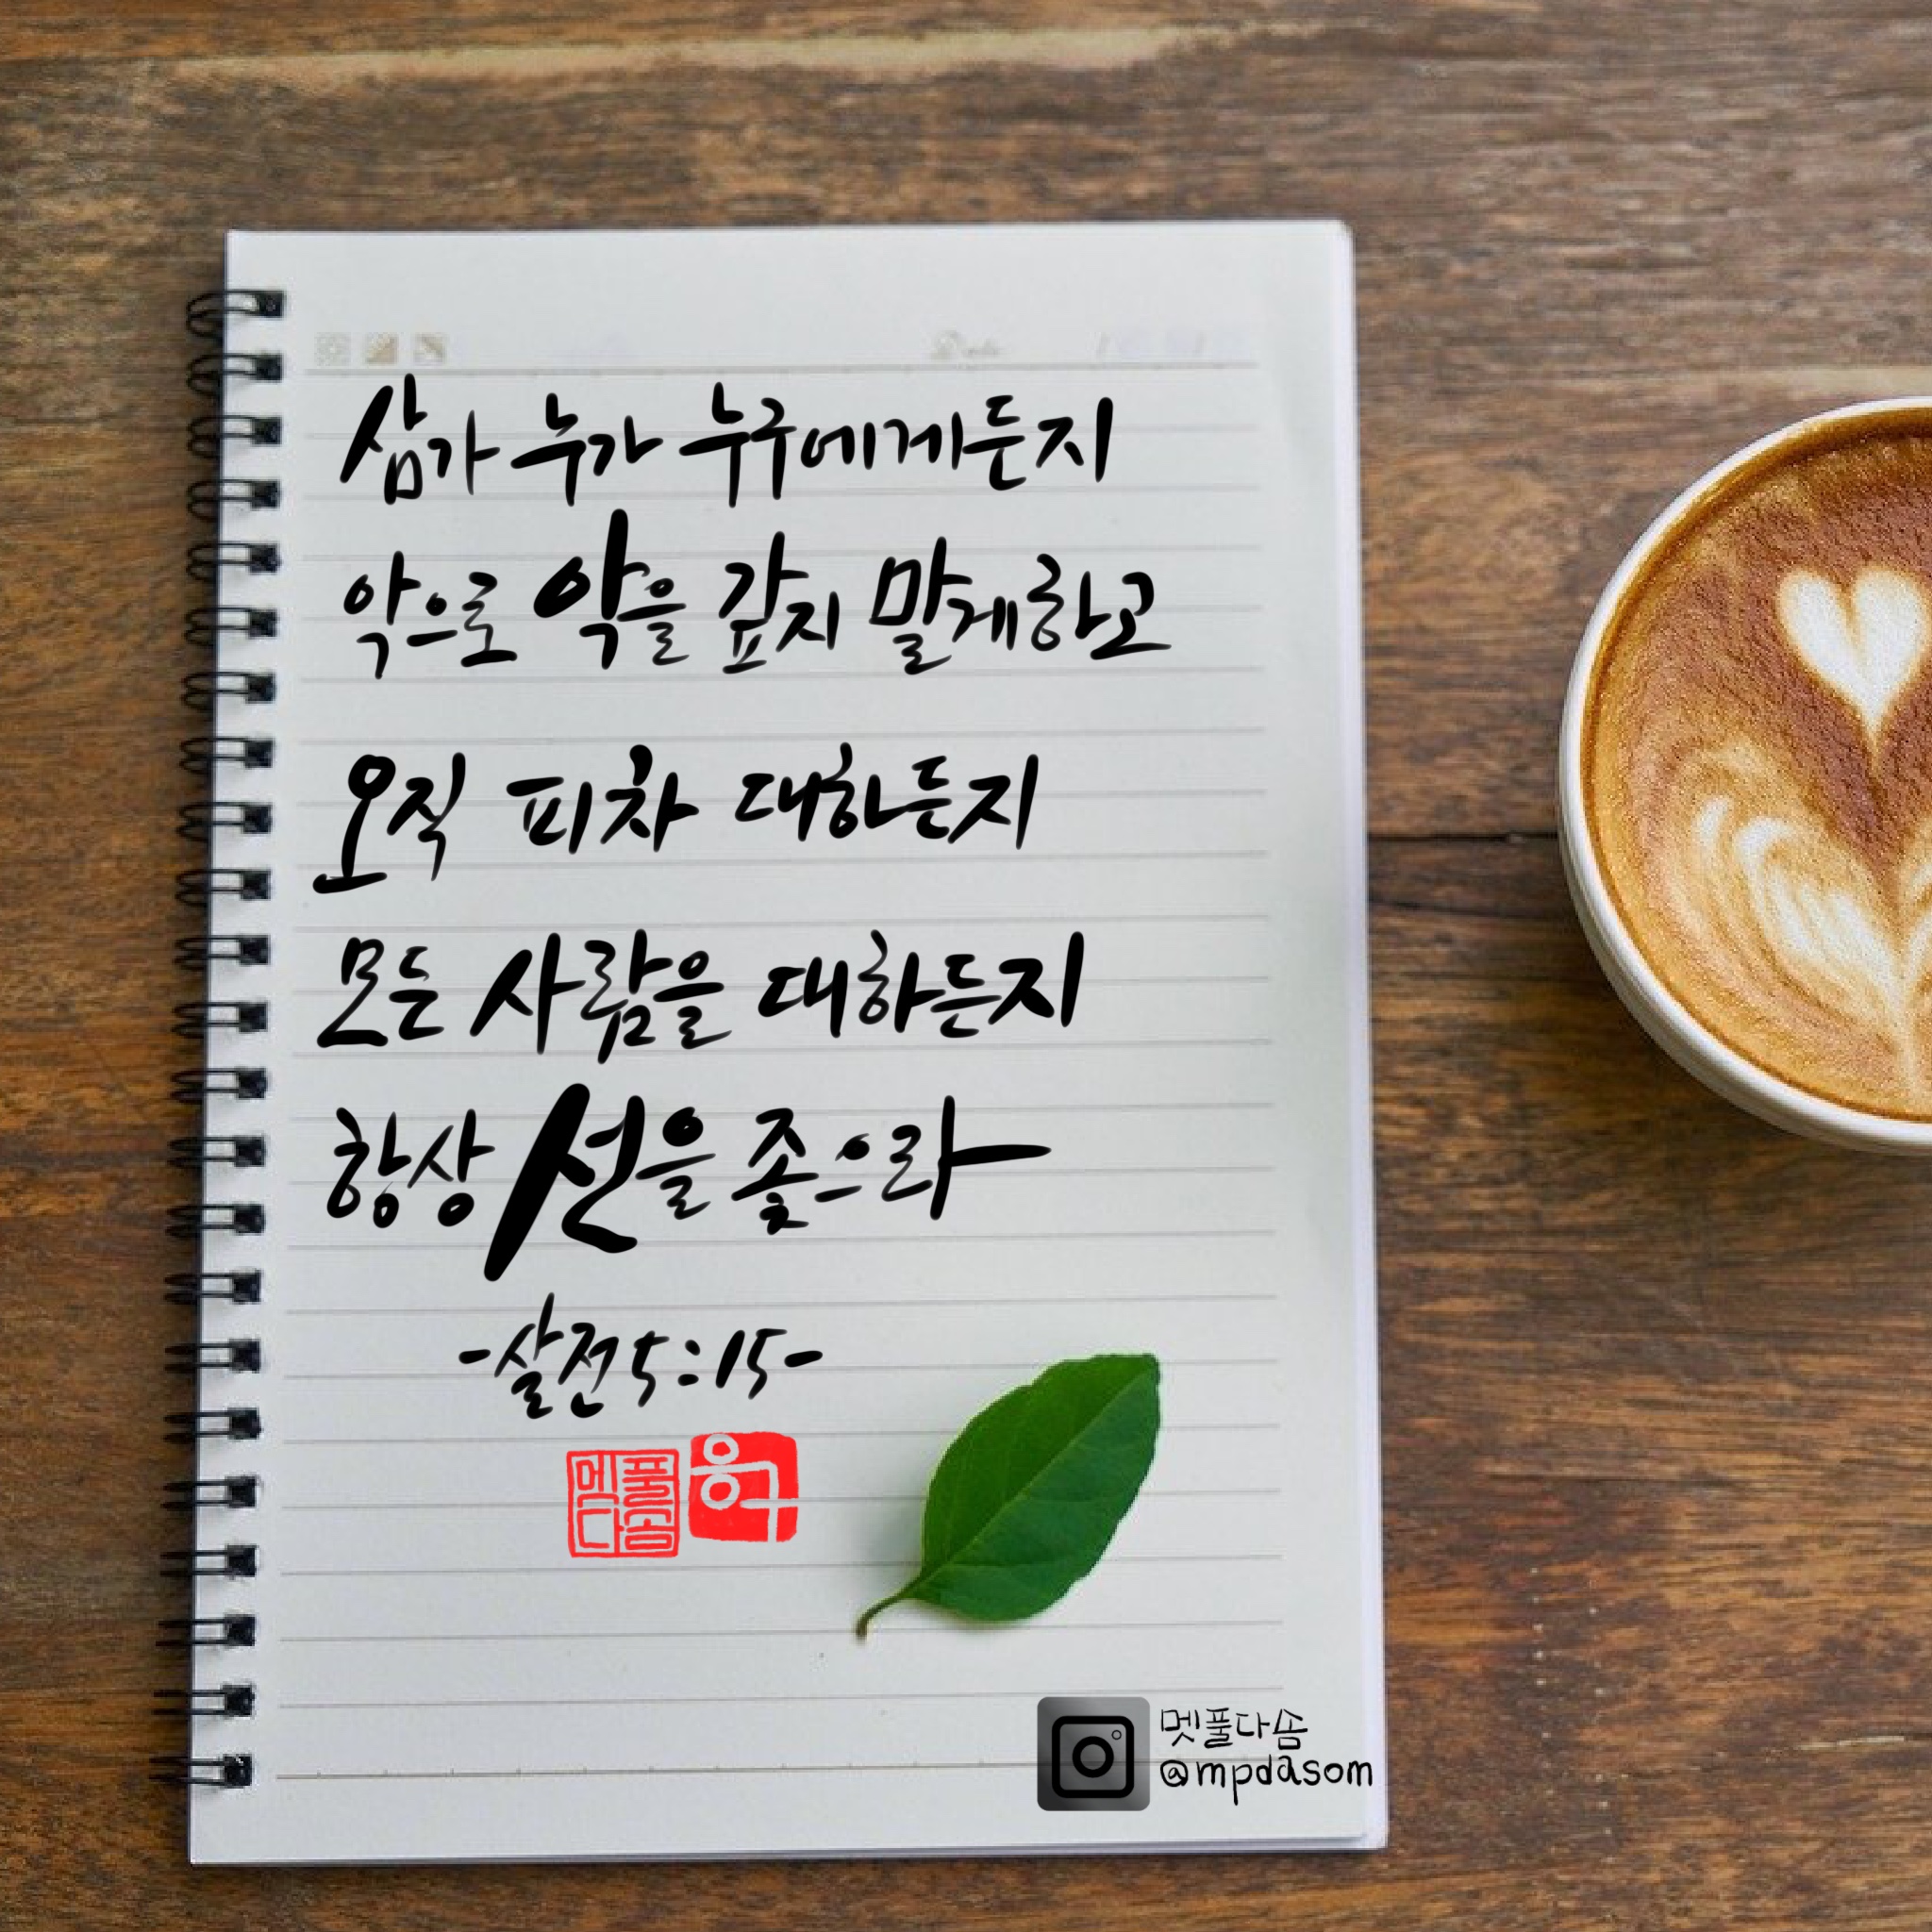 삼가 누가 누구에게든지
악으로 악을 갚지 말게하고
오직 피차 대하든지
모든 사람을 대하든지
항상 선을 좇으라
-살전5:15-
멧풀다솜
멧풀다솜
@mpdasom